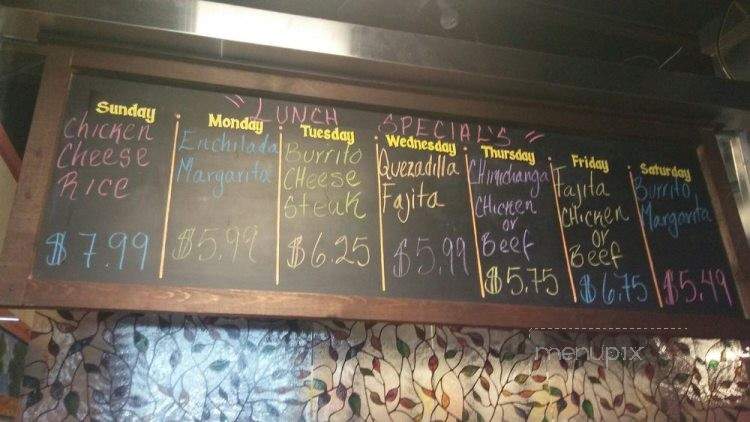 "LUNCH SPECIAL'S"
Sunday
Chicken
Cheese
Rice
$7.99
Monday
Enchilada
Margarita
$5.99
Tuesday
Burrito
CHeese
Steak
$6.25
Wednesday
Quezadilla
Fajita
$5.99
Thursday
CHimichanga
CHicken
or
Beef
$5.75
Friday
Fajita
CHicken
or
Beef
$6.75
Saturday
Burrito
Margarita
$5.49
menupix